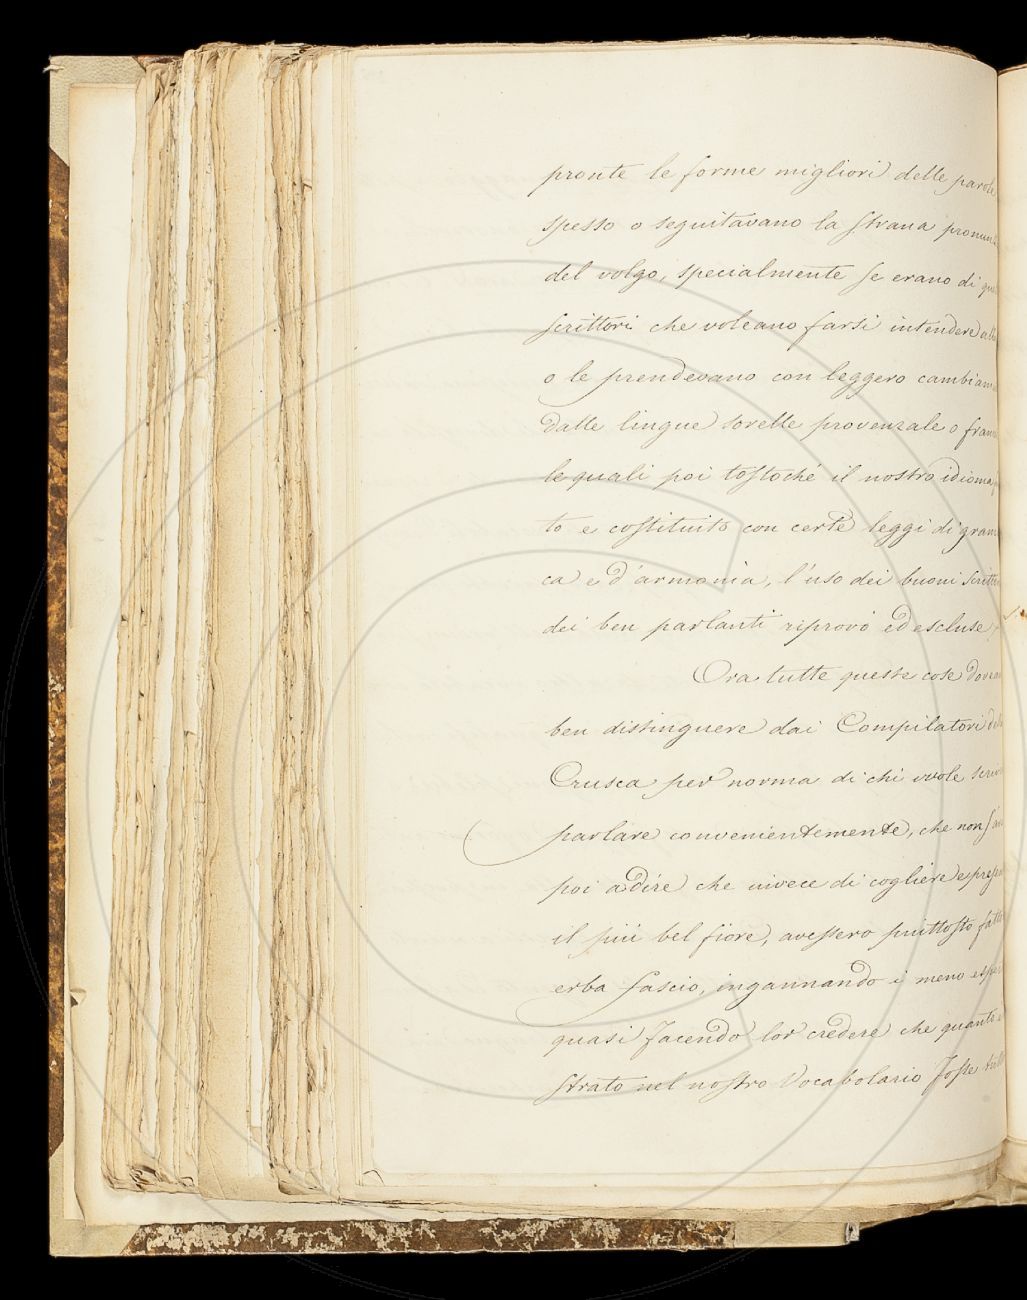 pronte le forme migliori delle parole
spesso o seguitavano la strana
del volgo, specialmente se erano di
scrittori che voleano farsi intendere
o le prendevano con leggero
dalle lingue sorelle provenzale o
le quali poi tostoché il nostro idioma
to e costituito con certe leggi di
ca e d'armonia, l'uso dei buoni
dei ben parlanti riprovò ed escluse
Ora tutte queste cose
ben distinguere dai Compilatori
Crusca per norma di chi vuole
parlare convenientemente, che non
poi a dire che invece di cogliere e
il più bel fiore, avessero piuttosto
erba fascio, ingannando i meno
quasi facendo lor credere che quanto
strato nel nostro Vocabolario fosse